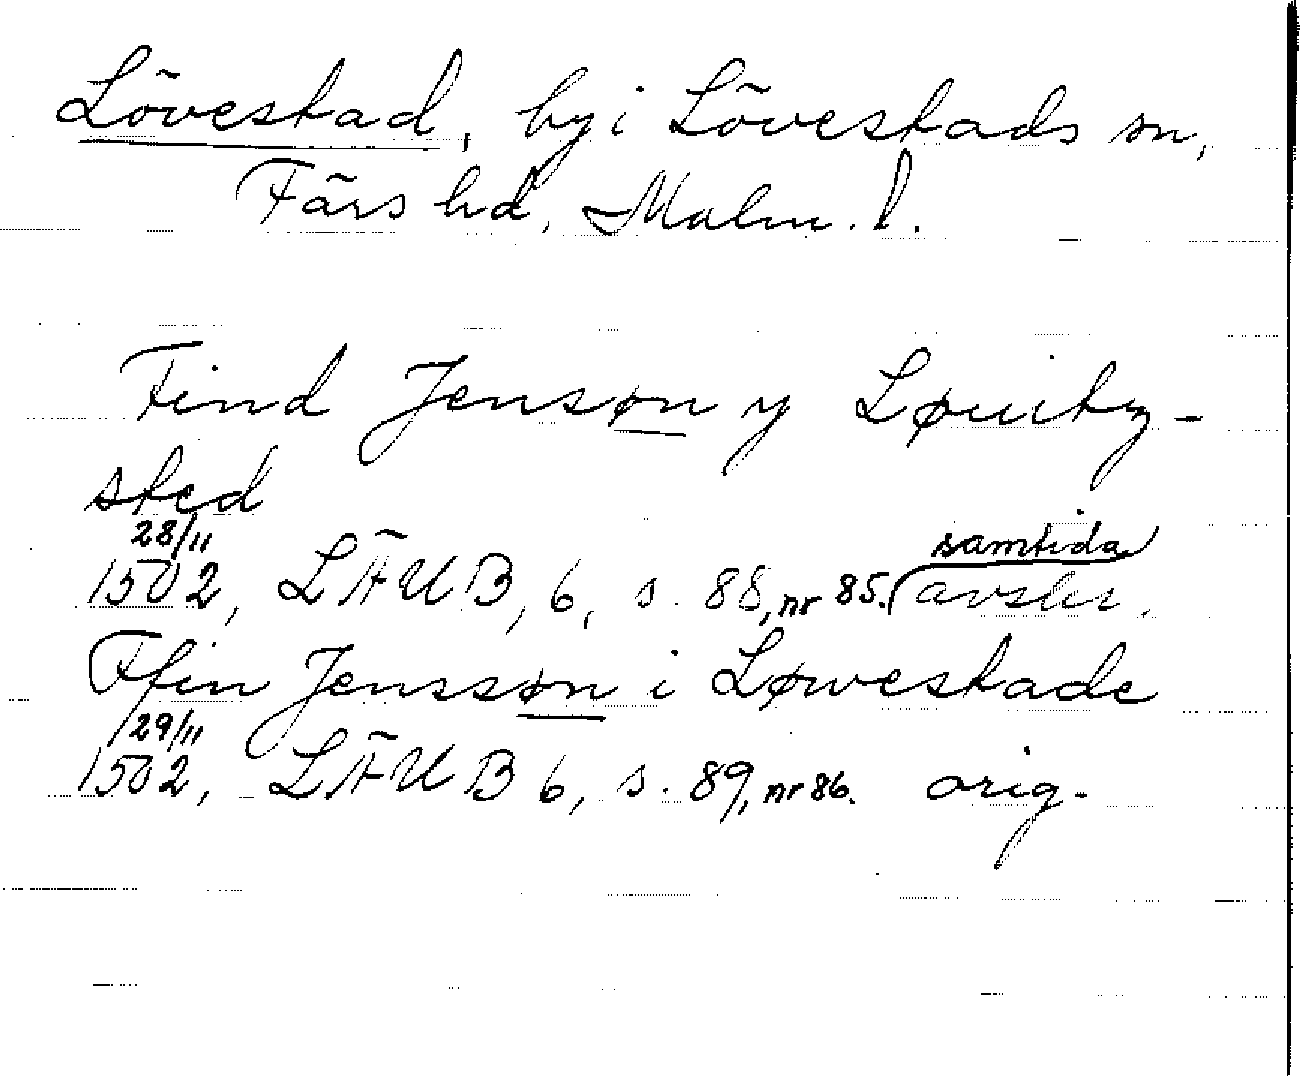 Lövestad, by i Lövestads sn,
Färs hd, Malm. l.
Find Jensøn y Løuitz-
sted
28/11
1502, LÄUB, 6, s. 88, nr 85. samtida
avskr.
Ffin Jenssøn i Løwestade
29/11
1502, LÄUB 6, s. 89, nr 86. orig.